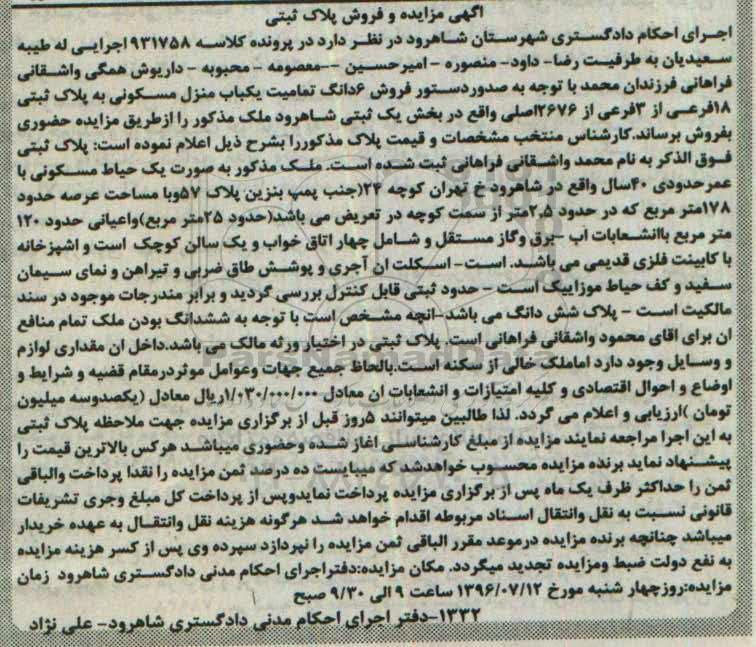 آگهی مزایده و فروش پلاک ثبتی
اجرای احکام دادگستری شهرستان شاهرود در نظر دارد در پرونده کلاسه ۹۳۱۷۵۸ اجرایی له طیبه
سعیدیان به طرفیت رضا- داود- منصوره - امیرحسین --معصومه - محبوبه - داریوش همگی واشقانی
فراهانی فرزندان محمد با توجه به صدوردستور فروش ۶دانگ تمامیت یکباب منزل مسکونی به پلاک ثبتی
۱۸فرعی از ۳فرعی از ۲۶۷۶اصلی واقع در بخش یک ثبتی شاهرود ملک مذکور را ازطریق مزایده حضوری
بفروش برساند.کارشناس منتخب مشخصات و قیمت پلاک مذکوررا بشرح ذیل اعلام نموده است: پلاک ثبتی
فوق الذکر به نام محمد واشقانی فراهانی ثبت شده است. ملک مذکور به صورت یک حیاط مسکونی با
عمرحدودی ۴۰سال واقع در شاهرود خ تهران کوچه ۲۴(جنب پمپ بنزین پلاک ۵۷وبا مساحت عرصه حدود
۱۷۸متر مربع که در حدود ۲,۵متر از سمت کوچه در تعریض می باشد(حدود ۲۵متر مربع)واعیانی حدود ۱۲۰
متر مربع باانشعابات آب -برق وگاز مستقل و شامل چهار اتاق خواب و یک سالن کوچک است و اشپزخانه
با کابینت فلزی قدیمی می باشد. است- اسکلت ان آجری و پوشش طاق ضربی و تیراهن و نمای سیمان
سفید و کف حیاط موزاییک است - حدود ثبتی قابل کنترل بررسی گردید و برابر مندرجات موجود در سند
مالکیت است - پلاک شش دانگ می باشد-انچه مشخص است با توجه به ششدانگ بودن ملک تمام منافع
ان برای اقای محمود واشقانی فراهانی است. پلاک ثبتی در اختیار ورثه مالک می باشد.داخل ان مقداری لوازم
و وسایل وجود دارد اماملک خالی از سکنه است.بالحاظ جمیع جهات وعوامل موثردرمقام قضیه و شرایط و
اوضاع و احوال اقتصادی و کلیه امتیازات و انشعابات ان معادل ۱/۰۳۰/۰۰۰/۰۰۰ریال معادل (یکصدوسه میلیون
تومان )ارزیابی و اعلام می گردد. لذا طالبین میتوانند ۵روز قبل از برگزاری مزایده جهت ملاحظه پلاک ثبتی
به این اجرا مراجعه نمایند مزایده از مبلغ کارشناسی اغاز شده وحضوری میباشد هرکس بالاترین قیمت را
پیشنهاد نماید برنده مزایده محسوب خواهدشد که میبایست ده درصد ثمن مزایده را نقدا پرداخت والباقی
ثمن را حداکثر ظرف یک ماه پس از برگزاری مزایده پرداخت نمایدوپس از پرداخت کل مبلغ وجری تشریفات
قانونی نسبت به نقل وانتقال اسناد مربوطه اقدام خواهد شد هرگونه هزینه نقل وانتقال به عهده خریدار
میباشد چنانچه برنده مزایده درموعد مقرر الباقی ثمن مزایده را نپردازد سپرده وی پس از کسر هزینه مزایده
به نفع دولت ضبط ومزایده تجدید میگردد. مکان مزایده:دفتراجرای احکام مدنی دادگستری شاهرود زمان
مزایده:روزچهار شنبه مورخ ۱۳۹۶/۰۷/۱۲ ساعت ۹ الی ۹/۳۰ صبح
۱۳۳۲-دفتر اجرای احکام مدنی دادگستری شاهرود- علی نژاد